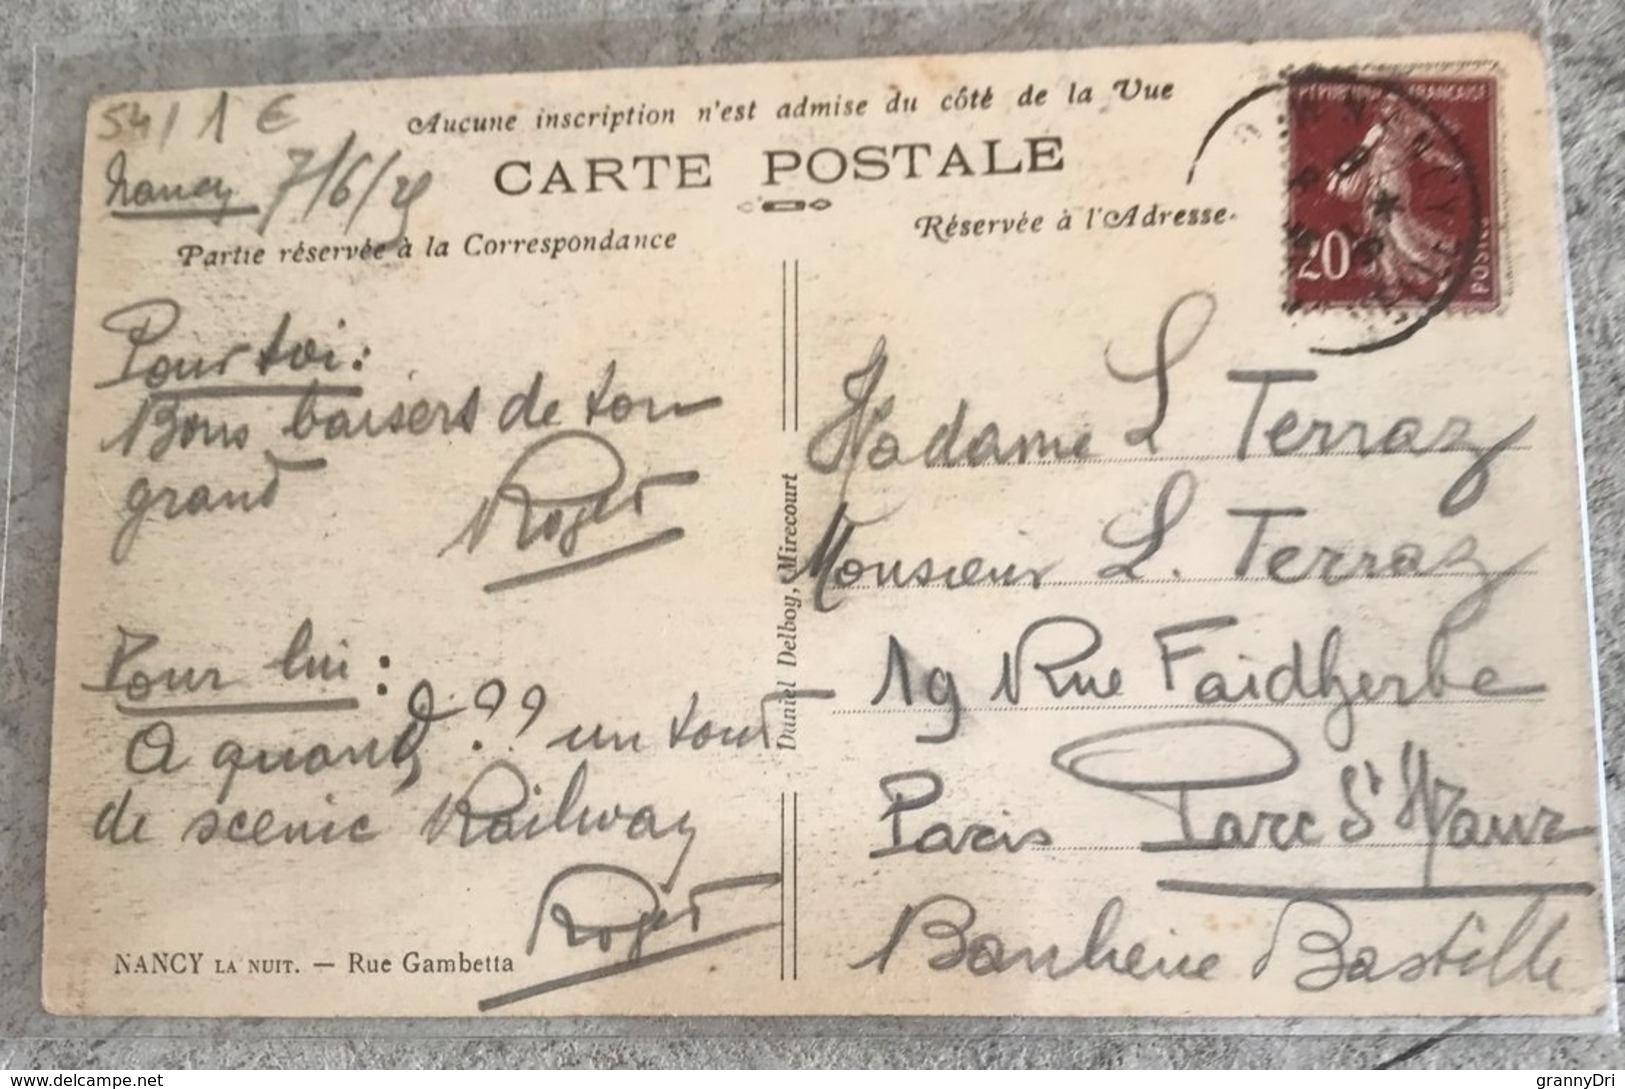 54 / 1 €
Aucune inscription n'est admise du côté de la Vue
CARTE POSTALE
Nancy 7/6/29
Partie réservée à la Correspondance
Réservée à l'Adresse.
RÉPUBLIQUE FRANÇAISE
20
POSTES
Pour toi:
Bons baisers de ton
grand
Roger
Pour lui:
A quand ??? un tour
de scenic Railway
Roger
NANCY LA NUIT. — Rue Gambetta
Daniel Delboy, Mirecourt
Madame L Terraz
Monsieur L. Terraz
19 Rue Faidherbe
Paris Parc St Maur
Banlieue Bastille
delcampe.net
grannyDri